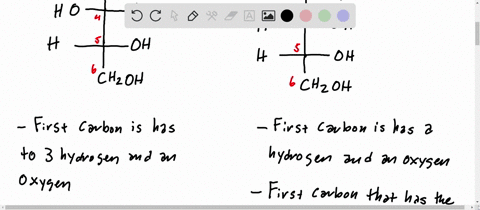 HO 4
H 5 OH
6 CH2OH
H 5 OH
6 CH2OH
A
- First carbon is has
to 3 hydrogen and an
oxygen
- First carbon is has a
hydrogen and an oxygen
- First carbon that has the